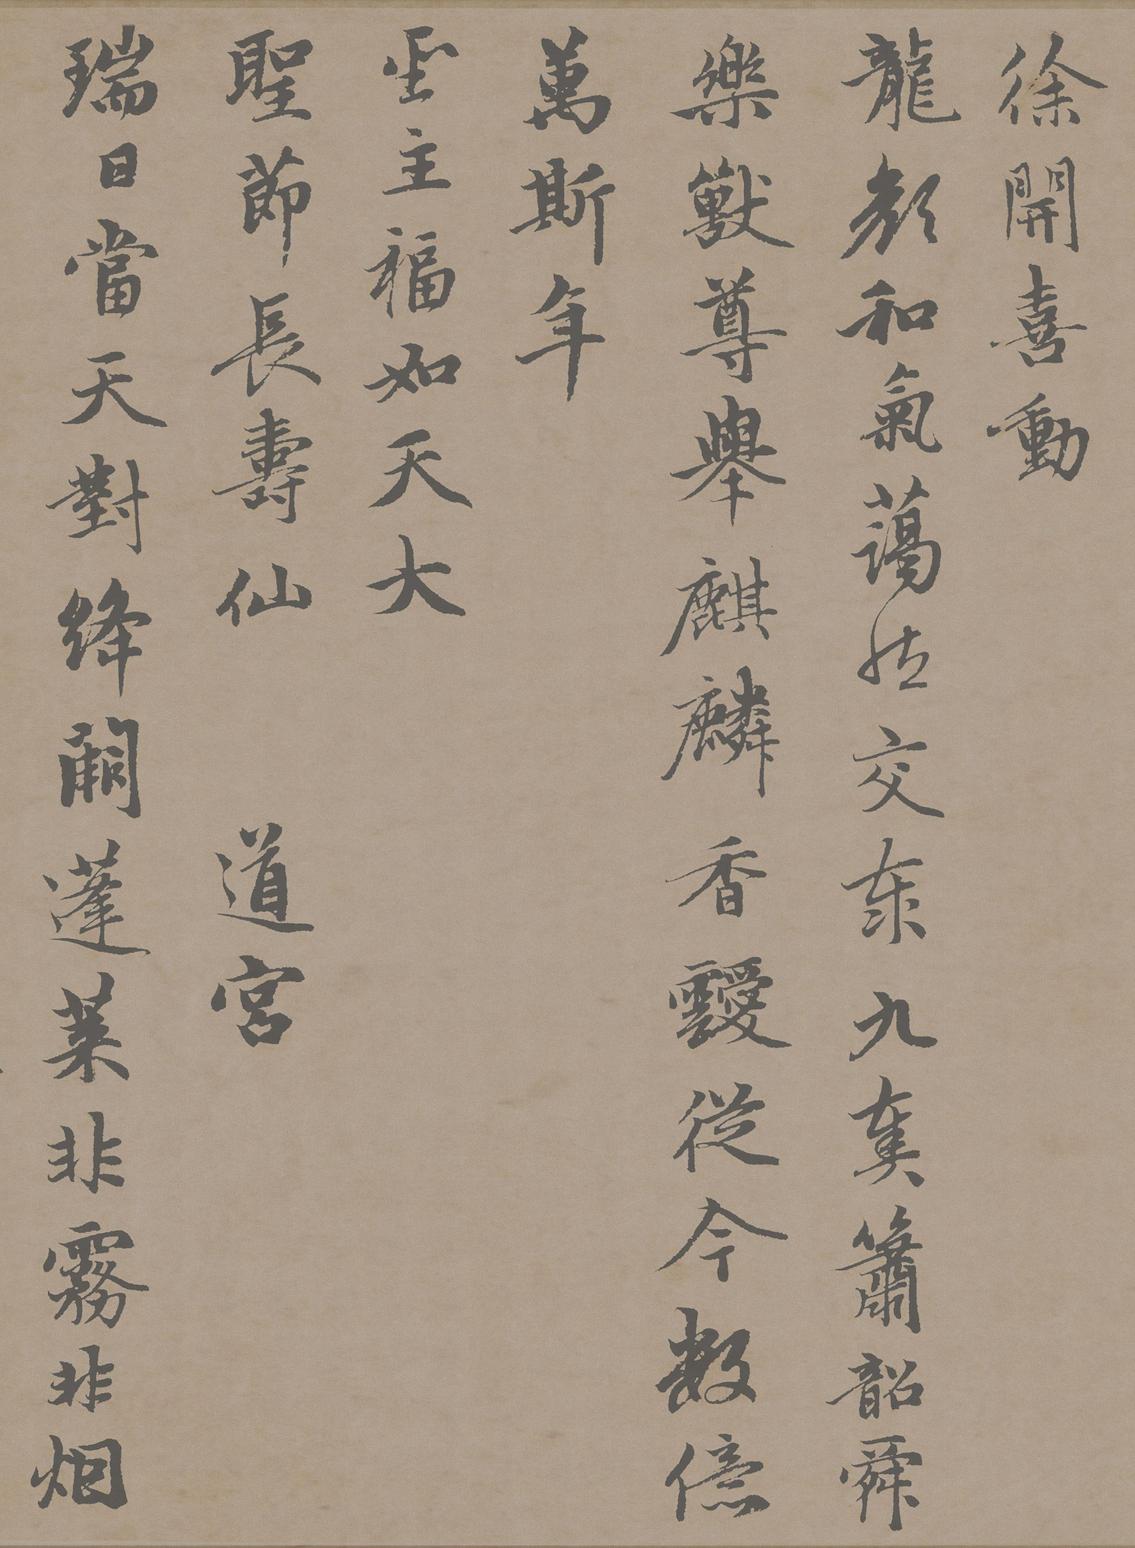 徐開喜動
龍顏和氣藹然交奏九奏簫韶舜
樂獸尊舉麒麟香靉從今數億
萬斯年
聖主福如天大
聖節長壽仙 道宮
瑞日當天對絳闕蓬萊非霧非烟